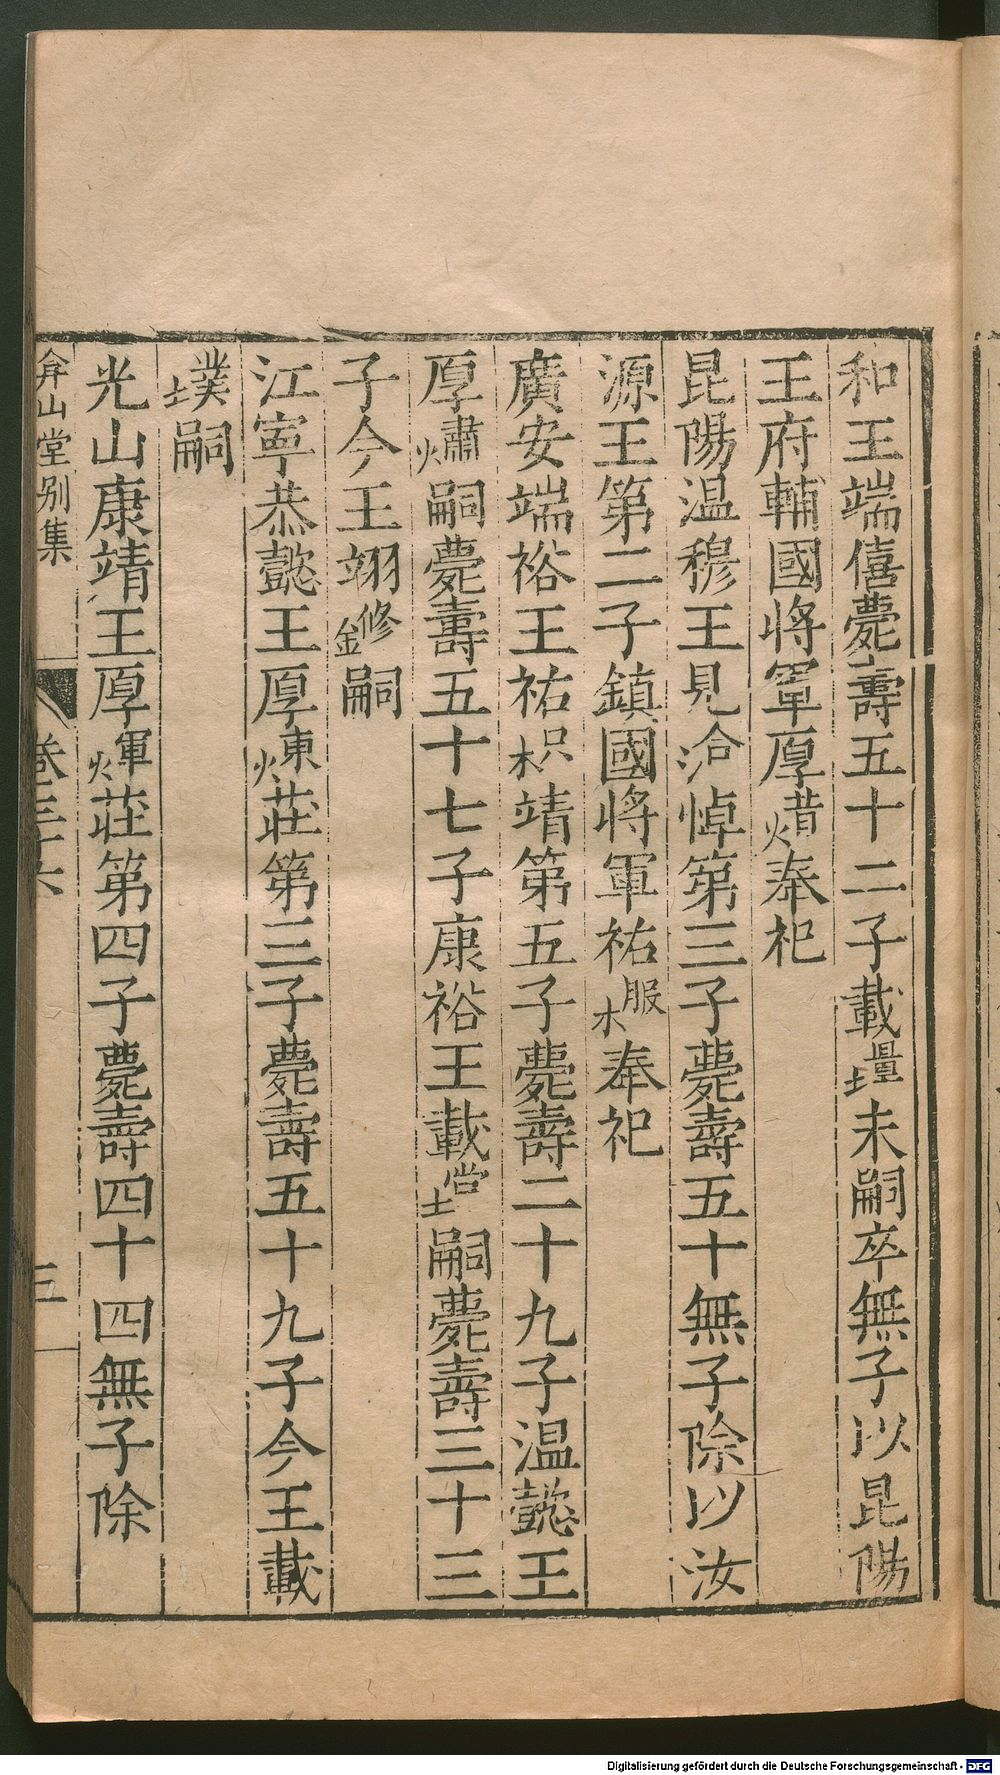 和王端僖薨壽五十二子載土量未嗣卒無子以昆陽
王府輔國將軍厚火昔奉祀
昆陽温穆王見洽悼第三子薨壽五十無子除以汝
源王第二子鎮國將軍祐木服奉祀
廣安端裕王祐木只靖第五子薨壽二十九子温懿王
厚火肅嗣薨壽五十七子康裕王載土尝嗣薨壽三十三
子今王翊金修嗣
江寧恭懿王厚火東莊第三子薨壽五十九子今王載
土菐嗣
光山康靖王厚火軍莊第四子薨壽四十四無子除
弇山堂别集 卷三十六 三
Digitalisierung gefördert durch die Deutsche Forschungsgemeinschaft - DFG